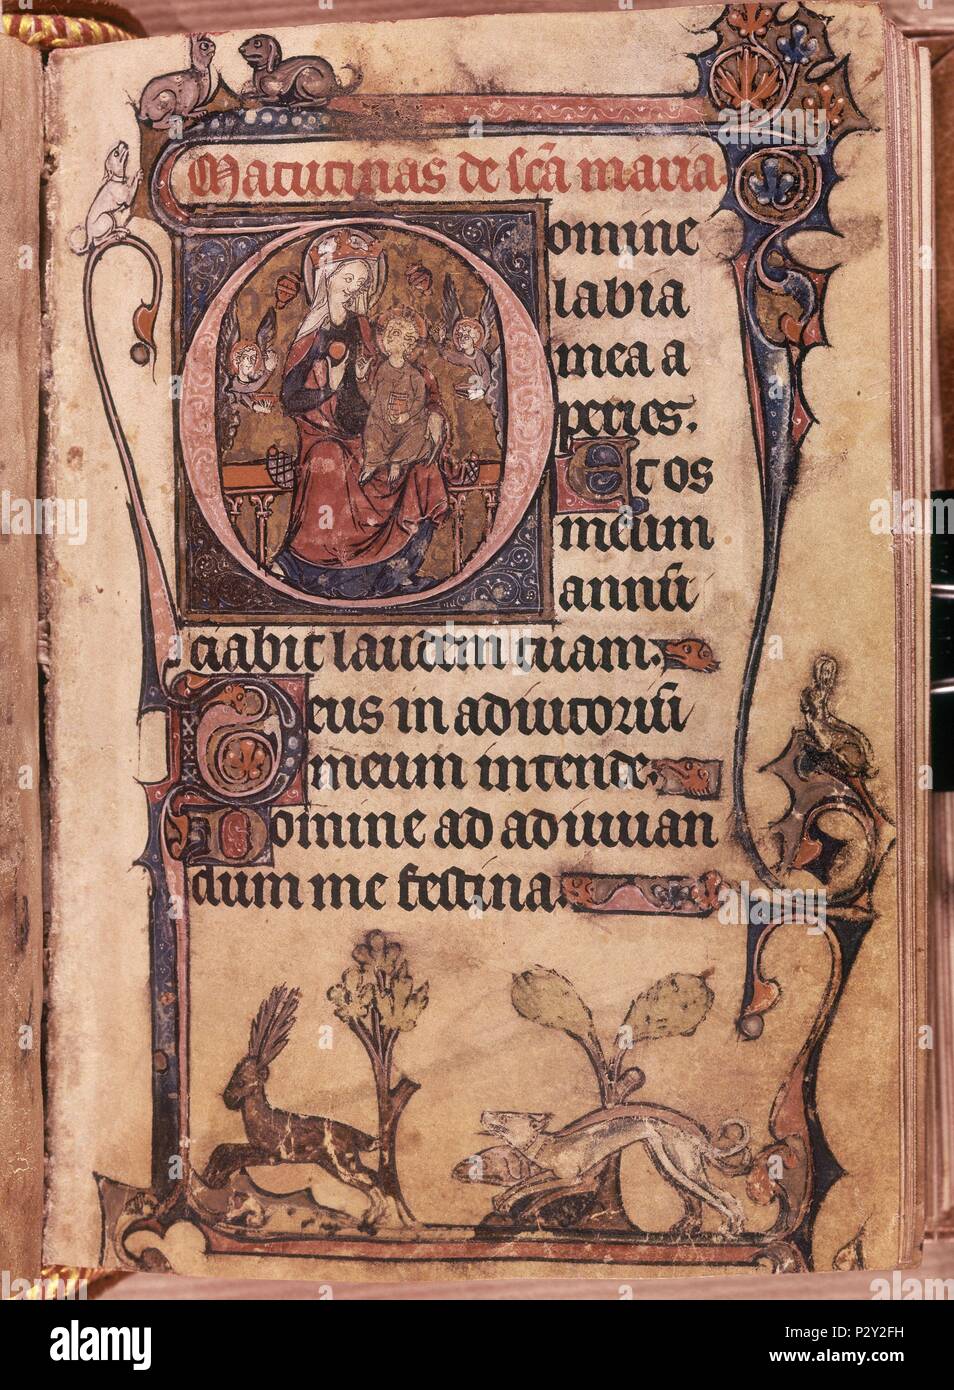 Matutinas de sc̃a maria.
Domine
labia
mea a
peries.
Et os
meum
annũ
ciabit laudem tuam.
Deus in adiutoriũ
meum intende.
Domine ad adiuuan
dum me festina.
alamy
a
alamy
Image ID: P2Y2FH
www.alamy.com